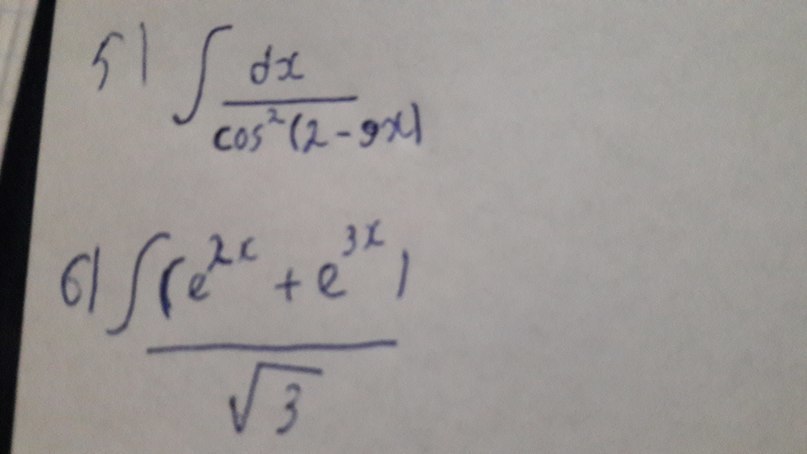 5) ∫ dx
cos²(2-9x)
6) ∫ (e^2x + e^3x)
√3